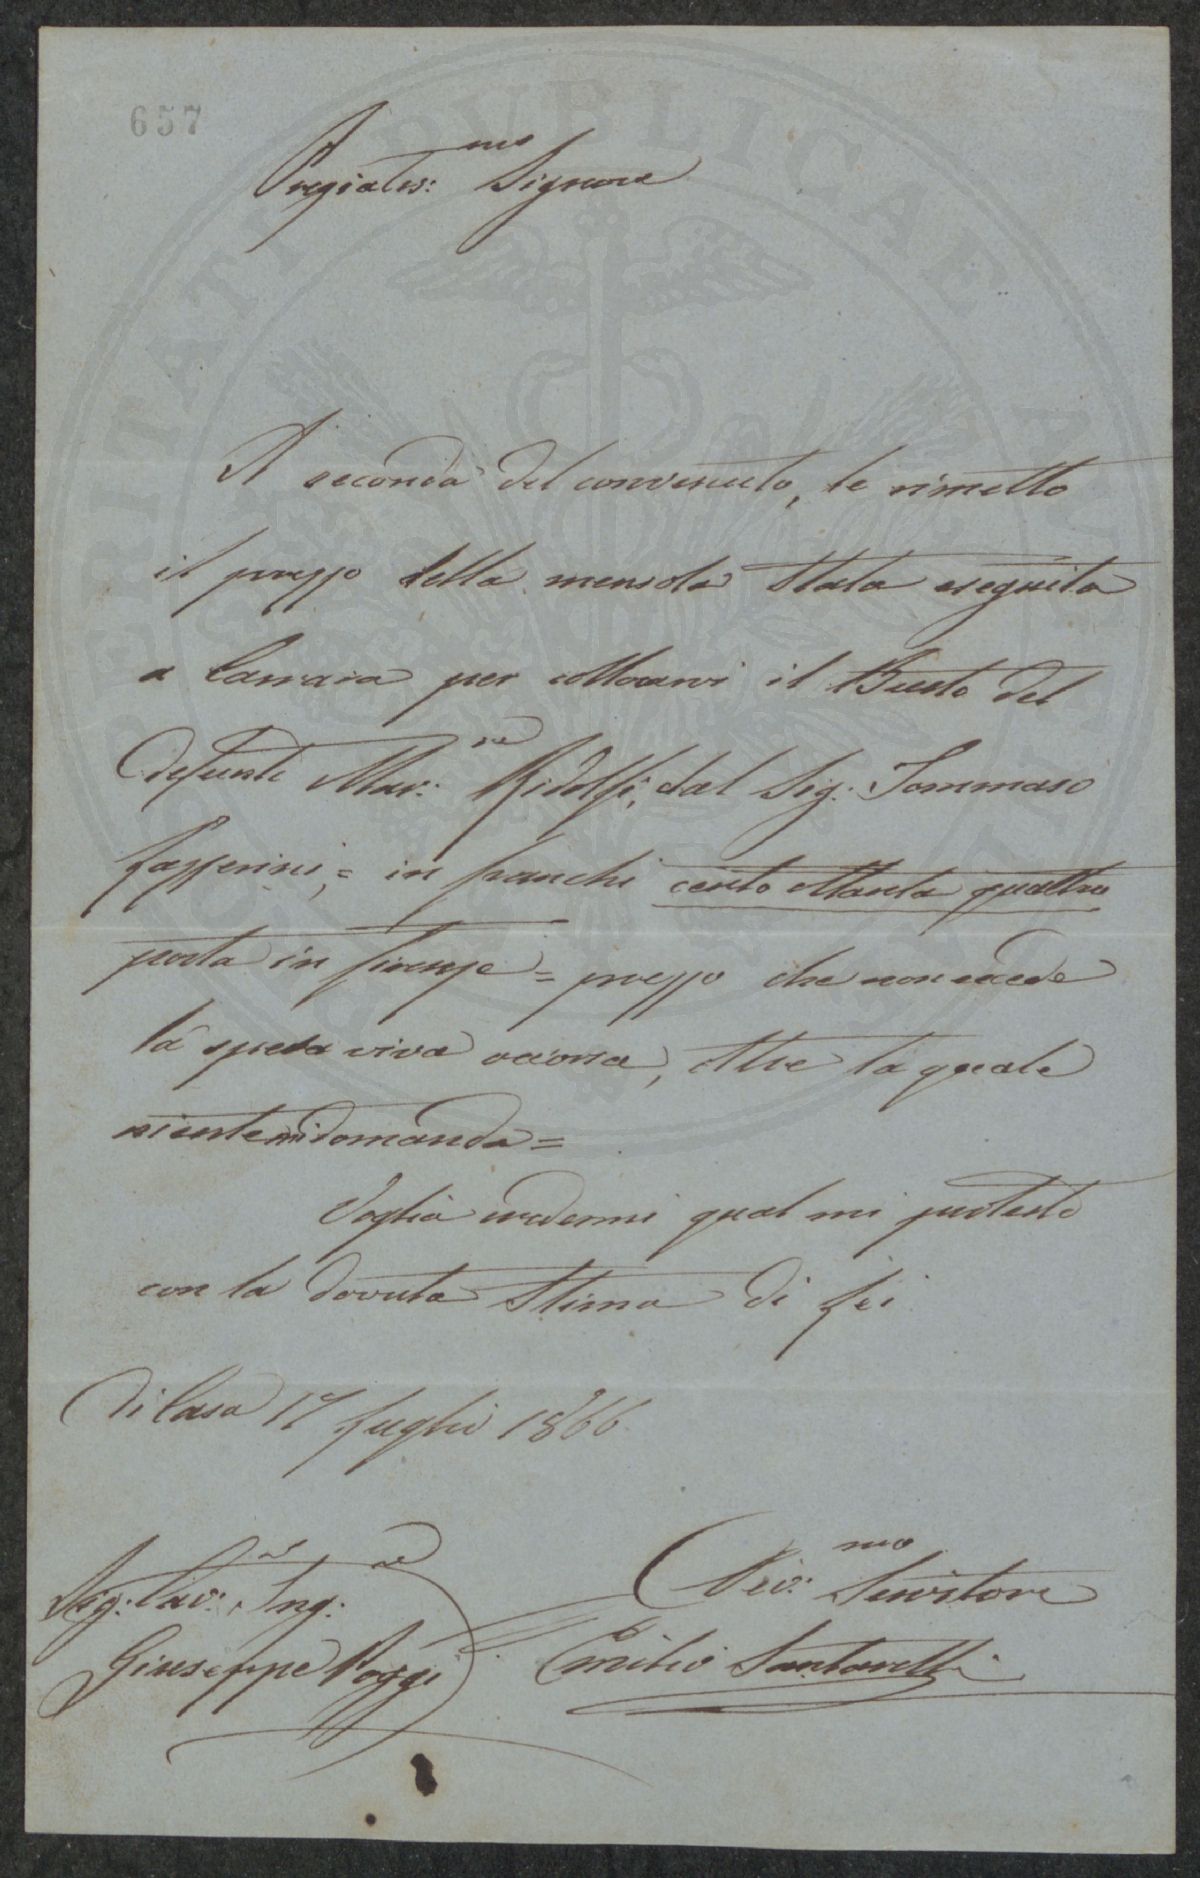 657
Pregiatis:mo Signore
A seconda del convenuto, le rimetto
il prezzo della mensola stata eseguita
a Carrara per collocarvi il Busto del
defunto Mar:se Ridolfi, dal Sig: Tommaso
Lazzerini, = in franchi cento ottanta quattro
posta in Firenze = prezzo che non eccede
la spesa viva occorsa, oltre la quale
niente mi domanda =
Voglia credermi qual mi protesto
con la dovuta stima di Lei
Di Casa 17 Luglio 1866.
Dev:mo Servitore
Emilio Santarelli
Sig: Cav:e Ing:re
Giuseppe Poggi